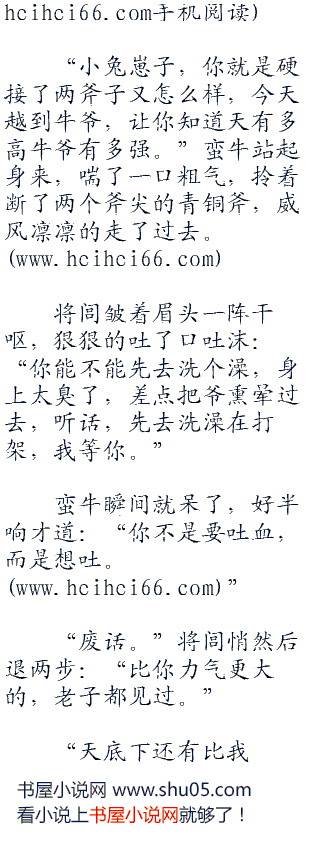 hcihci66.com手机阅读)
“小兔崽子，你就是硬
接了两斧子又怎么样，今天
越到牛爷，让你知道天有多
高牛爷有多强。”蛮牛站起
身来，喘了一口粗气，拎着
断了两个斧尖的青铜斧，威
风凛凛的走了过去。
(www.hcihci66.com)
将闾皱着眉头一阵干
呕，狠狠的吐了口吐沫：
“你能不能先去洗个澡，身
上太臭了，差点把爷熏晕过
去，听话，先去洗澡在打
架，我等你。”
蛮牛瞬间就呆了，好半
响才道：“你不是要吐血，
而是想吐。
(www.hcihci66.com)”
“废话。”将闾悄然后
退两步：“比你力气更大
的，老子都见过。”
“天底下还有比我
书屋小说网 www.shu05.com
看小说上书屋小说网就够了！